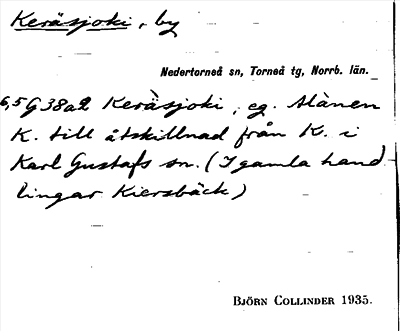 Keräsjoki, by
Nedertorneå sn, Torneå tg, Norrb. län.
6,5 G38a2 Keräsjoki, eg. Alánen
K. till åtskillnad från K. i
Karl Gustafs sn. (I gamla hand-
lingar Kiersbäck)
BJÖRN COLLINDER 1935.